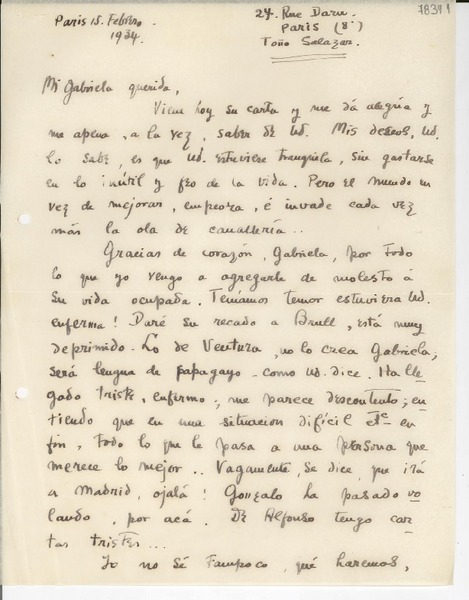 78391
Paris 15. Febrero
1934.
24. Rue Daru.
Paris (8°)
Toño Salazar.
Mi Gabriela querida,
Viene hoy su carta y me dá alegría y
me apena, a la vez, saber de Ud. Mis deseos, Ud.
lo sabe, es que Ud. estuviere tranquila, sin gastarse
en lo inútil y feo de la vida. Pero el mundo en
vez de mejorar, empeora, é invade cada vez
más la ola de canallería..
Gracias de corazón, Gabriela, por todo
lo que yo vengo a agregarle de molesto á
su vida ocupada. Teníamos temor estuviera Ud.
enferma! Daré su recado a Brull, está muy
deprimido. Lo de Ventura, no lo crea Gabriela,
será lengua de papagayo - como Ud. dice. Ha lle-
gado triste, enfermo, me parece descontento; en-
tiendo que en una situacion difícil etc en
fin, todo lo que le pasa a una persona que
merece lo mejor.. Vagamente, se dice, que irá
a Madrid, ojalá! Gonzalo ha pasado vo-
lando, por acá. De Alfonso tengo car-
tas tristes...
Yo no sé tampoco, qué haremos,